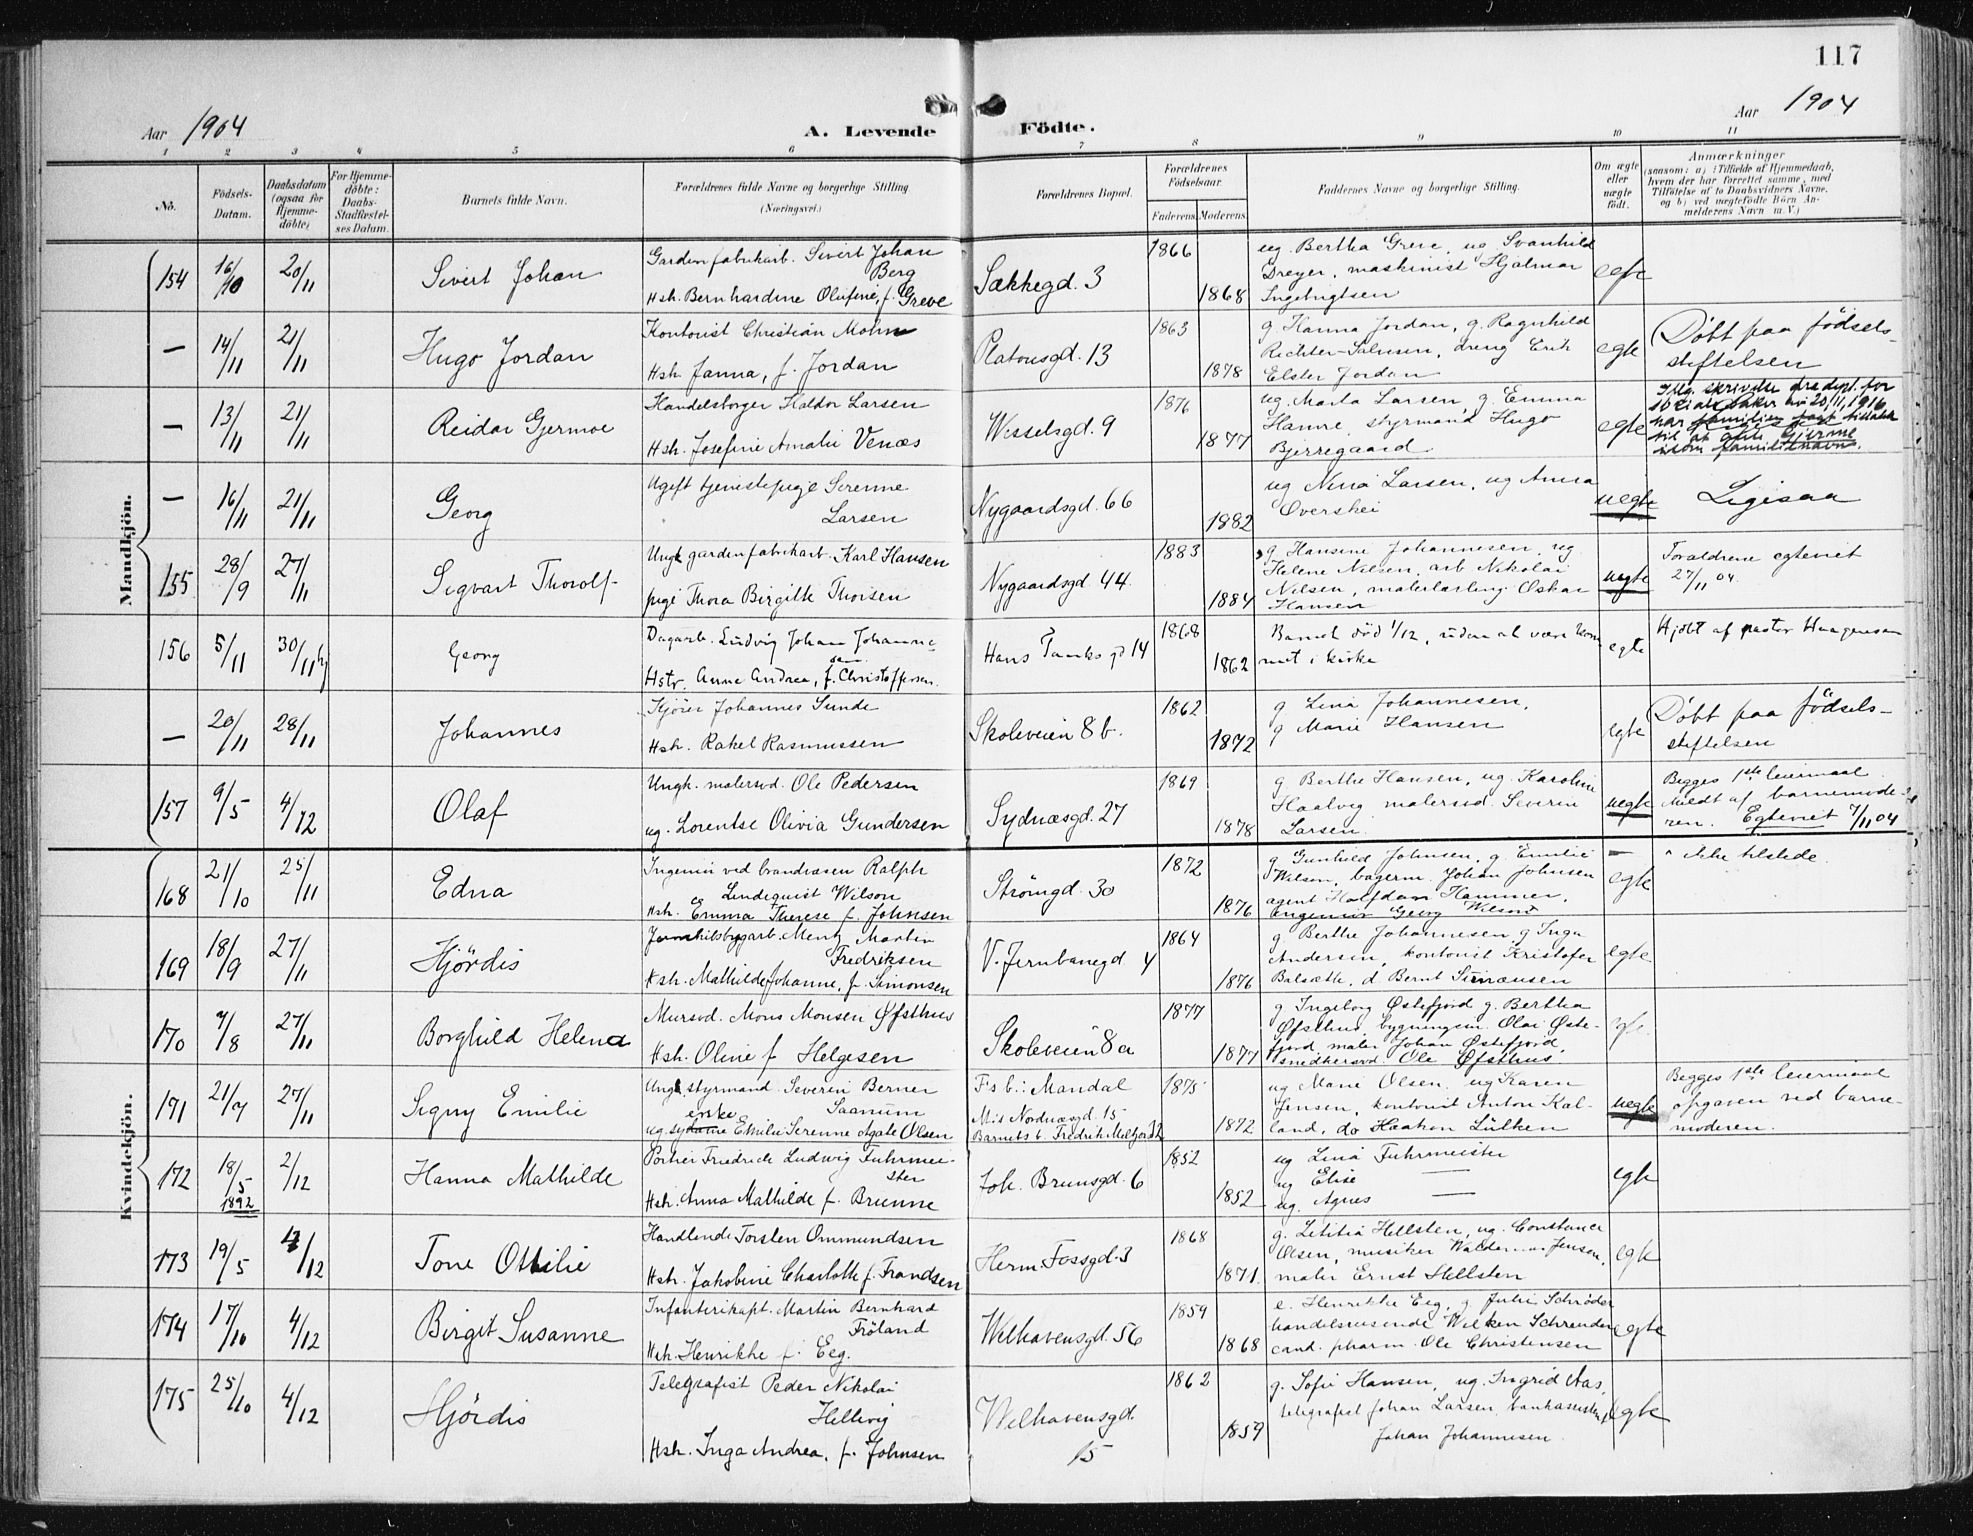 117
Aar 1904
A. Levende Födte.
Aar 1904
1 2 3 4 5 6 7 8 9 10 11
No.
Födsels-Datum.
Daabsdatum (ogsaa for Hjemme-döbte)
For Hjemme-döbte: Daabs-Stadfæstel-ses Datum.
Barnets fulde Navn.
Forældrenes fulde Navne og borgerlige Stilling. (Næringsvei.)
Forældrenes Bopæl.
Forældrenes Födselsaar.
Faderens. Moderens.
Faddernes Navne og borgerlige Stilling.
Om ægte eller uægte født.
Anmærkninger
(saasom: a) i Tilfælde af Hjemmedaab,
hvem der har forrettet samme, med
Tilföielse af to Daabsvidners Navne,
og b) ved uægtefödte Börn An-
melderens Navn m. V.)
Mandkjön.
154 16/10 20/11 Sivert Johan
Gardinfabrikarb. Sivert Johan
Berg
Hsh. Bernhardine Olufine, f. Greve
Sækkegd. 3
1866 1868
ug. Bertha Greve, ug Svanhild
Dreyer, maskinist Hjalmar
Ingebrigtsen
egte
— 14/11 21/11 Hugo Jordan
Kontorist Christian Mohn
Hsh. Janna, f. Jordan
Platousgd. 13
1863 1878
g. Hanna Jordan, g. Ragnhild
Richter-Salvesen, dreng Erik
Elster Jordan
egte
Döbt paa födsels-
stiftelsen
— 13/11 21/11 Reidar Gjermoe
Handelsborger Haldor Larsen
Hsh. Josefine Amalie Venæs
Wesselsgd. 9
1876 1877
ug. Marta Larsen, g. Emma
Hamre, styrmand Hugo
Bjerregaard
egte
— 16/11 21/11 Georg
Ugift tjenestepige Serenne
Larsen
Nygaardsgd. 66
1882
ug Nina Larsen, ug Anna
uegte
Ligesaa
155 28/9 27/11 Sigvart Thorolf
Ungk gardinfabrikarb. Karl Hansen
pige Thora Birgitte Thorsen
Nygaardsgd 44.
1883 1884
g. Hansine Johannesen, ug
Helene Nilsen, arb Nikolai
Nilsen, malerlærling Oskar
Hansen
uegte
Forældrene egteviet
27/11 04.
156 5/11 30/11 hj Georg
Dagarb. Ludvig Johan Johanne-
sen
Hstr. Anne Andrea, f. Christoffersen.
Hans Tanks gd 14
1868 1862
Barnet död 1/12, uden at være kom-
met i kirke
egte
Hjdöbt af pastor Haagensen
— 20/11 28/11 Johannes
Kjörer Johannes Sunde
Hsh. Rakel Rasmussen
Skoleveien 8 b.
1862 1872
g Lina Johannesen,
g Marie Hansen
egte
Döbt paa födsels-
stiftelsen
157 9/5 4/12 Olaf
Ungk. malersvd. Ole Pedersen
ug. Lorentse Olivia Gundersen
Sydnæsgd. 27
1869 1878
g Berthe Hansen, ug. Karoline
Haalvig malersvd. Severin
Larsen.
uegte
Begges 1ste leiermaal
meldt af barnemode-
ren. Egteviet 7/11 04
Kvindekjön.
168 21/10 25/11 Edna
Ingeniör ved brandvæsen Ralph
Lindequist Wilson
Hsh. Emma Therese f. Johnsen
Strömgd. 30
1872 1876
g Gunhild Johnsen, g. Emilie
Wilson, bagerm. Johan Johnsen
agent Halfdan Hammer,
Ingeniör Georg Wilson
egte
ikke tilstede.
169 18/9 27/11 Hjördis
Mentz Martin
Fredriksen
Hsh. Mathilde Johanne, f. Simonsen
V. Jernbanegd 4
1864 1876
g. Berthe Johannesen g Inga
Andersen, kontorist Kristofer
Balsæth, d Bernt Simonsen
egte
170 7/8 27/11 Borghild Helena
Mursvd. Mons Monsen Øfsthus
Hsh. Oline f Helgesen
Skoleveien 8 a
1877 1877
g Ingeborg Østefjord g. Bertha
Øfsthus, bygningsm. Olai Øste-
fjord, maler Johan Østefjord,
snedkersvd. Ole Øfsthus
egte.
171 21/7 27/11 Signy Emilie
Ungk. styrmand Severin Berner
Saanum
enke
ug sydame Emilie Serenne Agate Olsen
Fs b.: Mandal
Ms Nordnæsgd. 15
1875 1872
ug Marie Olsen, ug Karen
Jensen, kontorist Anton Kal-
land, do Haakon Lütken
uegte
Begges 1ste leiermaal
opgaven ved barne-
moderen.
172 18/5 1892 2/12 Hanna Mathilde
Portier Friedrich Ludwig Fuhrmei-
ster
Hsh. Anna Mathilde f. Brunne
Joh. Brunsgd. 6
1852 1852
ug Lina Fuhrmeister
ug Elise —
ug. Agnes —
egte
173 19/5 4/12 Tone Ottilie
Handlende Torsten Ommundsen
Hsh. Jakobine Charlotte f. Frandsen
Herm. Fossgd. 3
1868 1871.
g. Letitia Hellsten, ug. Constance
Olsen, musiker Waldemar Jensen,
maler Ernst Hellsten
egte
174 17/10 4/12 Birgit Susanne
Infanterikapt. Martin Bernhard
Fröland
Hsh. Henrikke f. Eeg.
Welhavensgd. 56
1859 1868
e. Henrikke Eeg, g. Julie Schröder
handelsreisende Wilken Schreuder
cand. pharm. Ole Christensen
egte
175 25/10 4/12 Hjördis
Telegrafist Peder Nikolai
Hellevig
Hsh. Inga Andrea, f. Johnsen
Welhavensgd.
15
1862 1859
g. Sofie Hansen, ug. Ingrid Aas,
telegrafist Johan Larsen, bankassistent
Johan Johannesen
egte